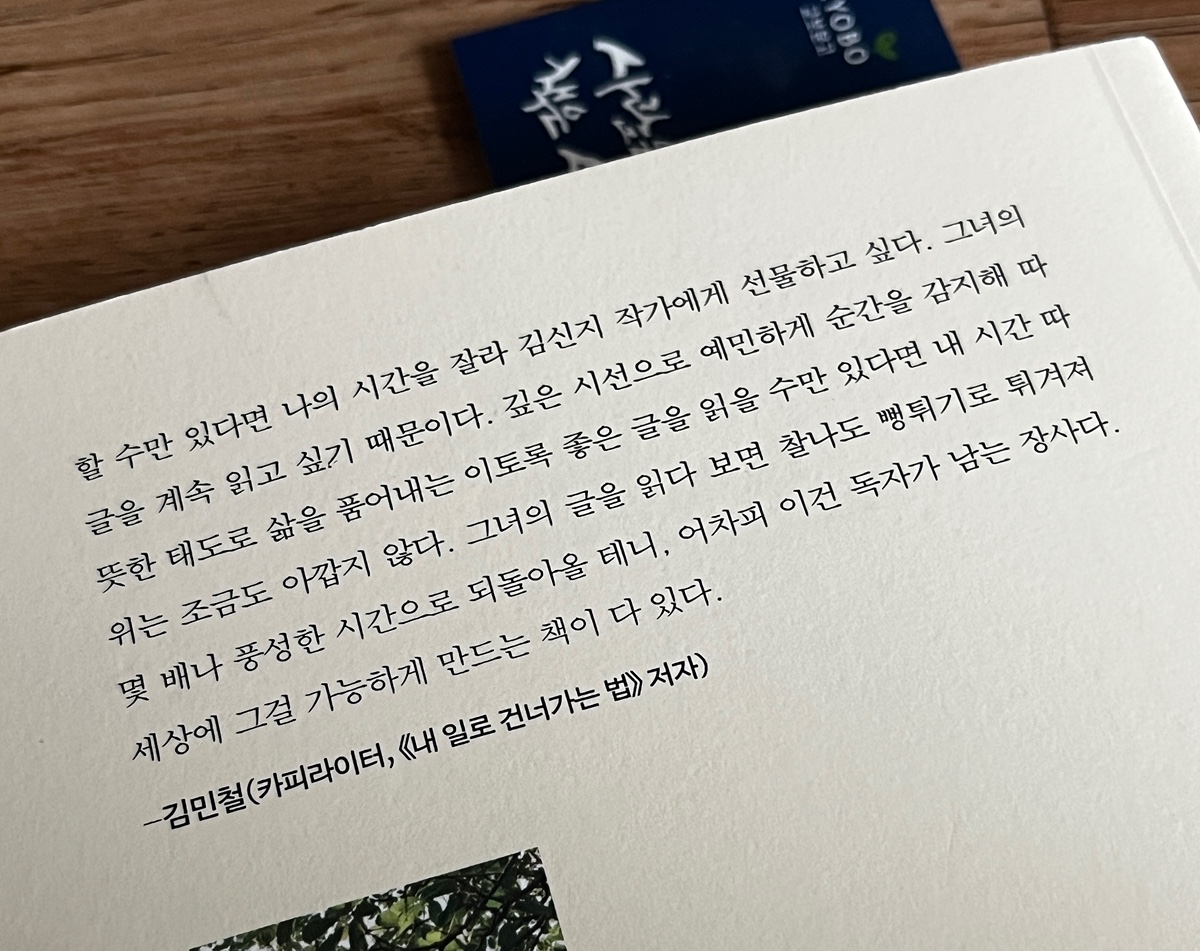 YOBO
교보문고
할 수만 있다면 나의 시간을 잘라 김신지 작가에게 선물하고 싶다. 그녀의
글을 계속 읽고 싶기 때문이다. 깊은 시선으로 예민하게 순간을 감지해 따
뜻한 태도로 삶을 품어내는 이토록 좋은 글을 읽을 수만 있다면 내 시간 따
위는 조금도 아깝지 않다. 그녀의 글을 읽다 보면 찰나도 뻥튀기로 튀겨져
몇 배나 풍성한 시간으로 되돌아올 테니, 어차피 이건 독자가 남는 장사다.
세상에 그걸 가능하게 만드는 책이 다 있다.
–김민철(카피라이터, 《내 일로 건너가는 법》 저자)